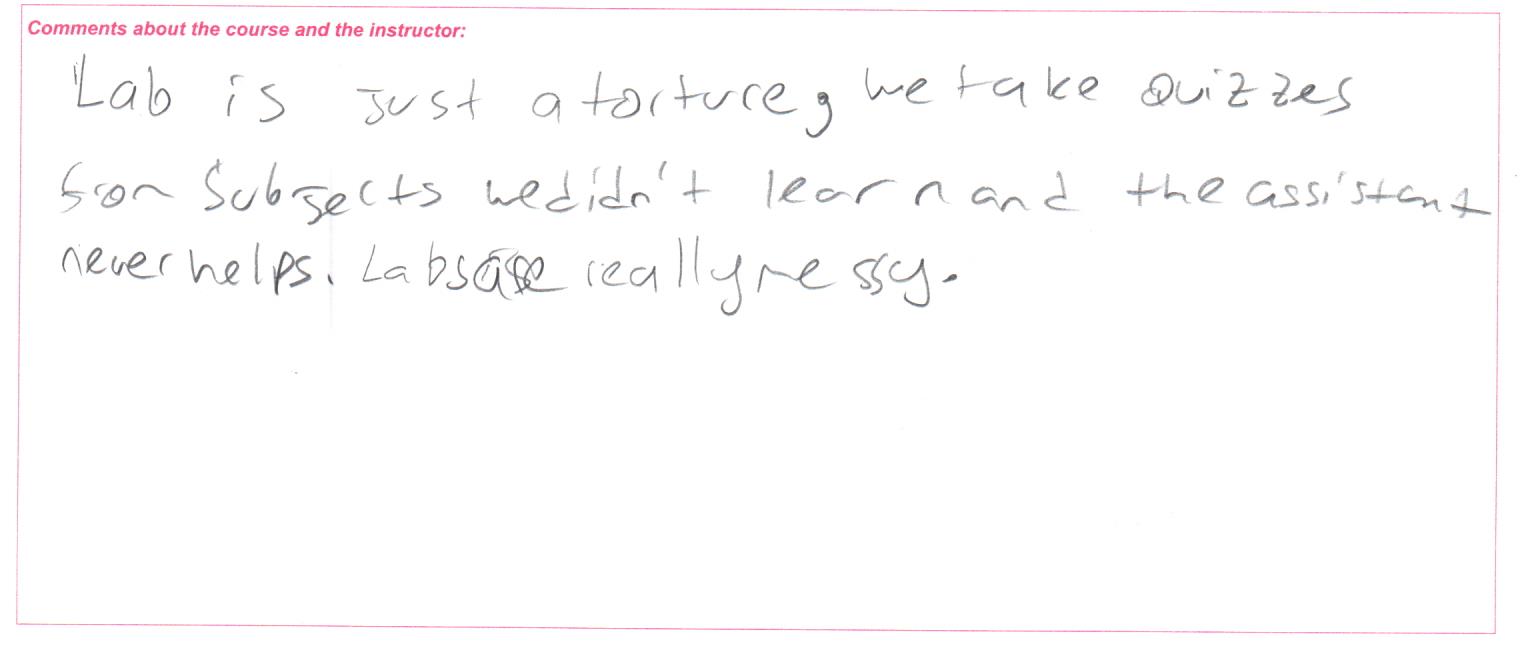 Comments about the course and the instructor:
Lab is just a torture, we take quizzes
from subjects we didn't learn and the assistant
never helps. Labs are really messy.